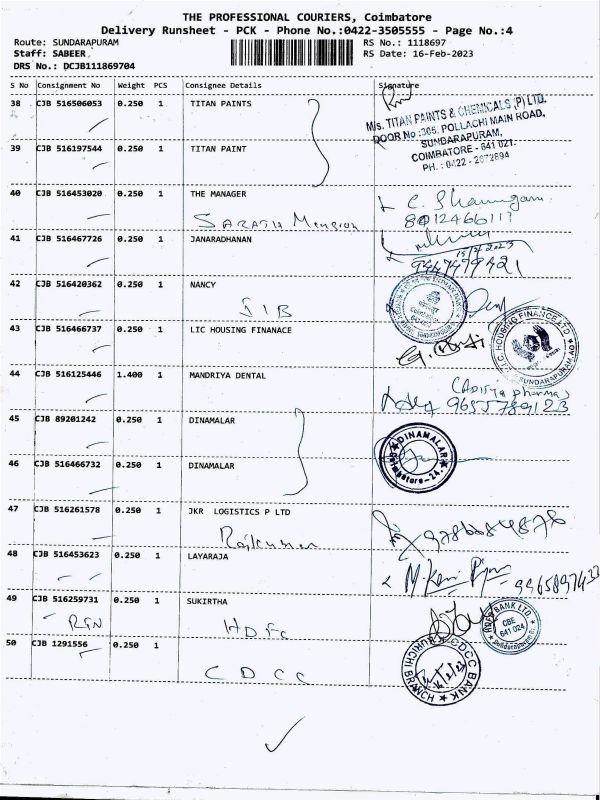 THE PROFESSIONAL COURIERS, Coimbatore
Delivery Runsheet - PCK - Phone No.:0422-3505555 - Page No.:4
Route: SUNDARAPURAM RS No.: 1118697
Staff: SABEER RS Date: 16-Feb-2023
DRS No.: DCJB111869704
S No Consignment No Weight PCS Consignee Details Signature
38 CJB 516506053 0.250 1 TITAN PAINTS
M/s. TITAN PAINTS & CHEMICALS (P) LTD.
DOOR No :305, POLLACHI MAIN ROAD,
SUNDARAPURAM,
COIMBATORE - 641 021.
PH. : 0422 - 2672894
39 CJB 516197544 0.250 1 TITAN PAINT
40 CJB 516453020 0.250 1 THE MANAGER
SARATH Mension
C. Shanmugam
8012466117
41 CJB 516467726 0.250 1 JANARADHANAN
9447479421
42 CJB 516420362 0.250 1 NANCY
SIB
43 CJB 516466737 0.250 1 LIC HOUSING FINANACE
L.I.C. HOUSING FINANCE LTD
SUNDARAPURAM AO
44 CJB 516125446 1.400 1 MANDRIYA DENTAL
(Aditya pharma)
9655789123
45 CJB 89201242 0.250 1 DINAMALAR
DINAMALAR
Coimbatore-24.
46 CJB 516466732 0.250 1 DINAMALAR
47 CJB 516261578 0.250 1 JKR LOGISTICS P LTD
Rajkumar
9786684876
48 CJB 516453623 0.250 1 LAYARAJA
49 CJB 516259731 0.250 1 SUKIRTHA
RTN HDFC
HDFC BANK LTD
CBE
641 024
50 CJB 1291556 0.250 1
CDCC
CDCC BANK
KURICHI BRANCH